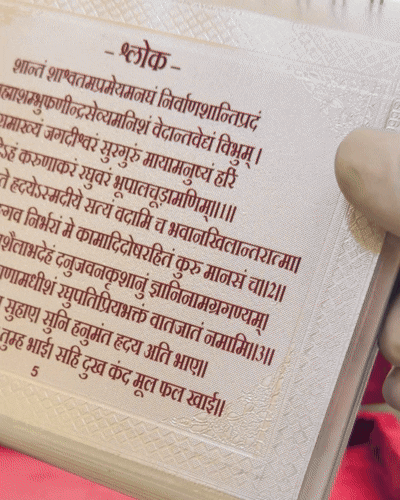 - श्लोक -
शान्तं शाश्वतमप्रमेयमनघं निर्वाणशान्तिप्रदं
ह्माशम्भुफणीन्द्रसेव्यमनिशं वेदान्तवेद्यं विभुम्।
माख्यं जगदीश्वरं सुरगुरुं मायामनुष्यं हरिं
करुणाकरं रघुवरं भूपालचूड़ामणिम्॥1॥
हृदयेऽस्मदीये सत्यं वदामि च भवानखिलान्तरात्मा।
निर्भरां मे कामादिदोषरहितं कुरु मानसं च॥2॥
शैलाभदेहं दनुजवनकृशानुं ज्ञानिनामग्रगण्यम्
णामधीशं रघुपतिप्रियभक्तं वातजातं नमामि॥3॥
सुहाए। सुनि हनुमंत हृदय अति भाए॥
तुम्ह भाई। सहि दुख कंद मूल फल खाई॥
5